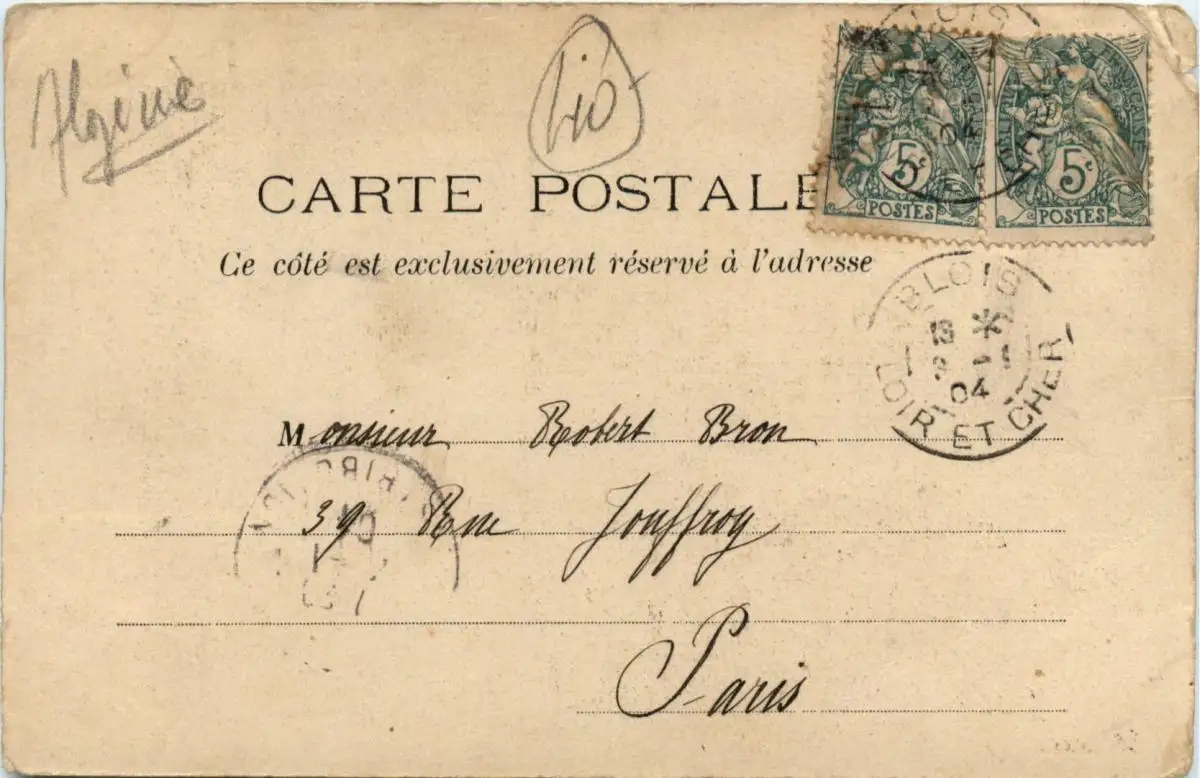 Algérie
CARTE POSTALE
Ce côté est exclusivement réservé à l'adresse
5c
POSTES
5c
POSTES
BLOIS
13 *
9 - 1
04
LOIR ET CHER
Monsieur Robert Bron
39 Rue Jouffroy
Paris